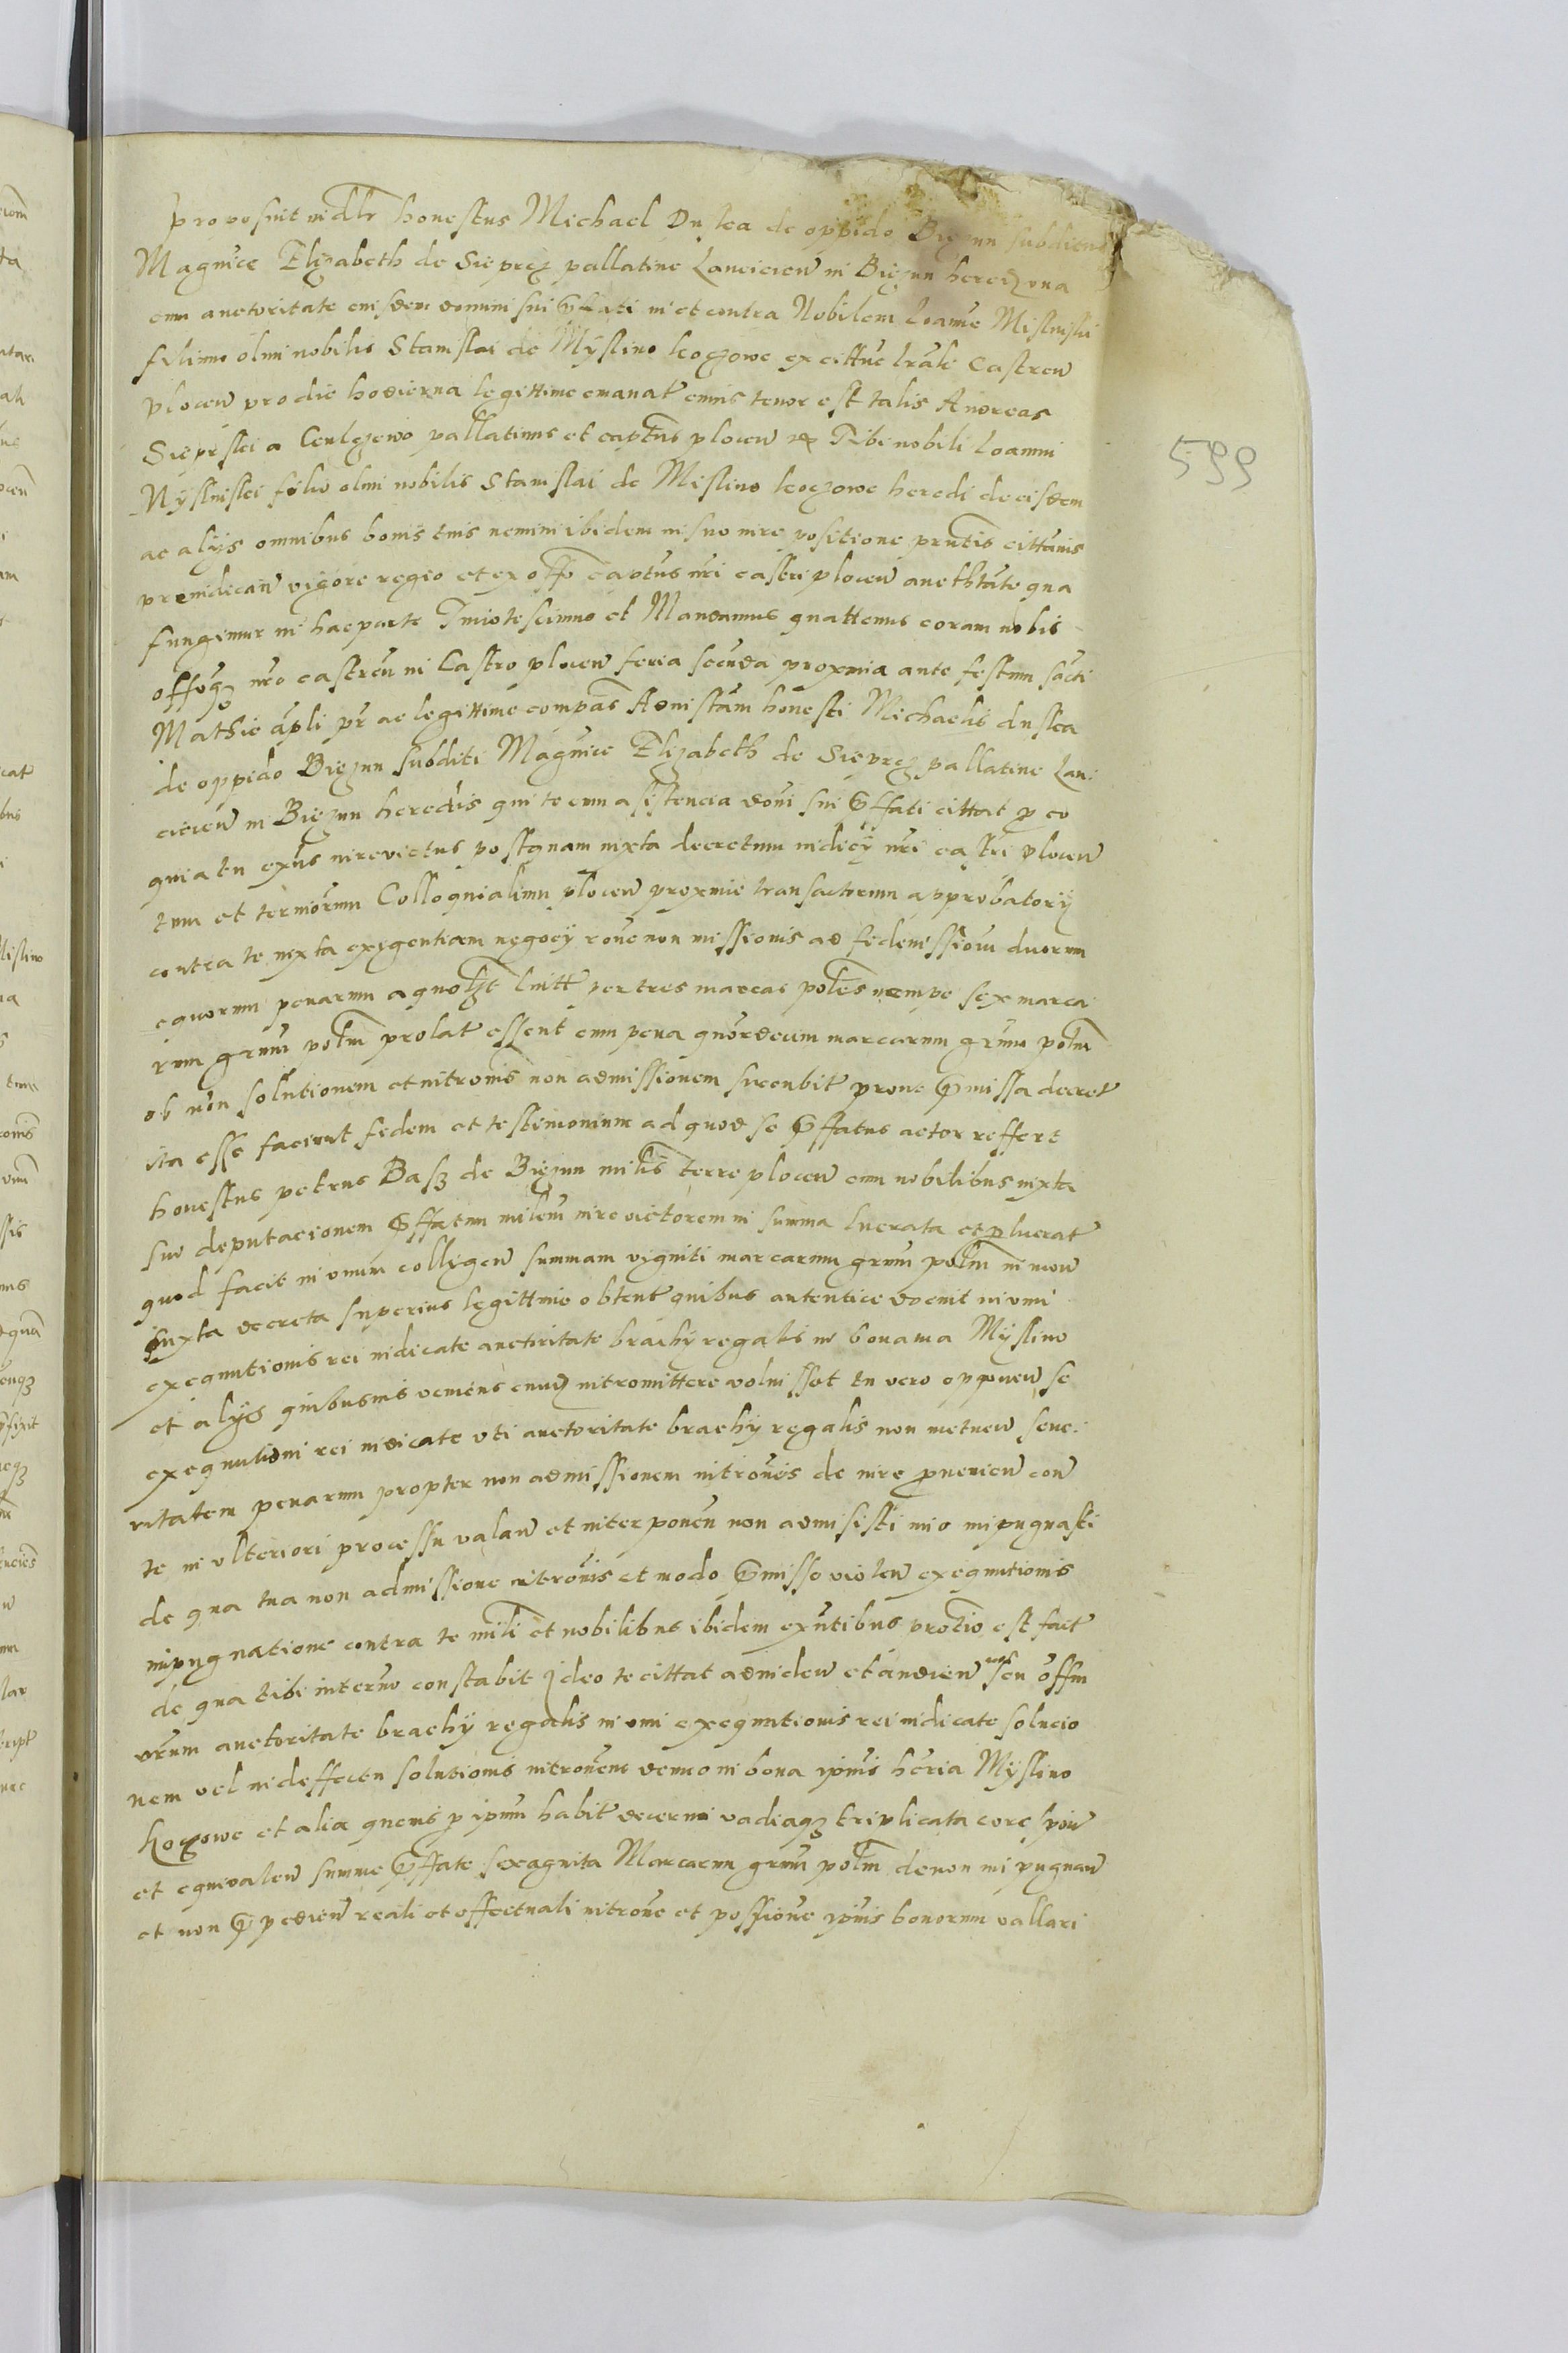 proposuit in iudlr honestus Michael Duska de oppido Biezun subditus
Magnice Elizabeth de Sieprcz pallatine Lanciciens in Biezun heredz una
cum auctoritate eiusdem domini sui pffati in et contra Nobilem Joanne Mislinski
filium olim nobilis Stanislai de Myslino koczowe ex cittne lrali Castren
plocen pro die hodierna legittime emanat cuius tenor est talis Andreas
Sieprski a Gulczewo pallatinus et captus plocen Tibi nobili Joanni
Myslinski filio olim nobilis Stanislai de Mislino koczowe heredi de eisdem
ac alijs omnibus bonis tuis nemini ibidem in suo iure positione pntis cittanis
preiudican vigore regio et ex offo captus nri castri plocen aucthtate qua
fungimur in hac parte Innotescimus et Mandamus quattenus coram nobis
offoqz nro castren in Castro plocen feria secunda proxima ante festum sacti
Mathie apli pr ac legittime compas Ad instam honesti Michaelis duska
de oppido Biezun subditi Magnice Elizabeth de Sieprcz pallatine Lan-
cicien in Biezun heredis qui te cum asistencia doni sui pffati cittat p eo
quia tu exns iure victus postquam iuxta decretum iudicij nri castri plocen
tum et terminorum Colloquialium plocen proxime transactorum approbatorij
contra te iuxta exigentiam negocij rone non missionis ad fideiussiom duorum
equorum penarum lnitt per tres marcas poles nempe sex marca
rum grum polm prolat essent cum pena quordecim marcarum grum polm
ob non solutionem et intronis non admissionem sucubit prout pmissa decret
ita esse faciunt fidem et testimonium ad quod se pffatus actor reffert
honestus petrus Bass de Biezun milis terre plocen cum nobilibus iuxta
sui deputacionem pffatum milem iure victorem in summa lucrata et plucrat
quod facit in unum colligen summam viginti marcarum grum polm in mon
iuxta decreta superius legittime obtent quibus autentice docuit in omi
exequutionis rei iudicate auctoritate brachij regalis in bona tua Myslino
et alijs quibusuis veniens eumqz intromittere voluisset tu vero opponen se
exequutioni rei iudicate uti auctoritate brachij regalis non metuen seue-
ritatem penarum propter non admissionem intronis de iure prouenien con
te in ulteriori processu valan et interponen non admisisti imo impugnasti
de qua tua non admissione intronis et modo pmisso violen exequutionis
impugnatione contra te mili et nobilibus ibidem exntibus protio est fact
de qua tibi in termno constabit Ideo te cittat ad viden et audien seu offm
nrum auctoritate brachij regalis in omi exequutionis rei iudicate solucio
nem vel in deffectu solutionis intronem denuo in bona ipius heria Myslino
koczowe et alia queuis p ipum habit decerni vadiaqz triplicata corespon
et equiualen summe pffate sexaginta Marcarum grum polm de non impugnan
et non ppedien reali et effectuali introne et possione ipius bonorum vallari
599